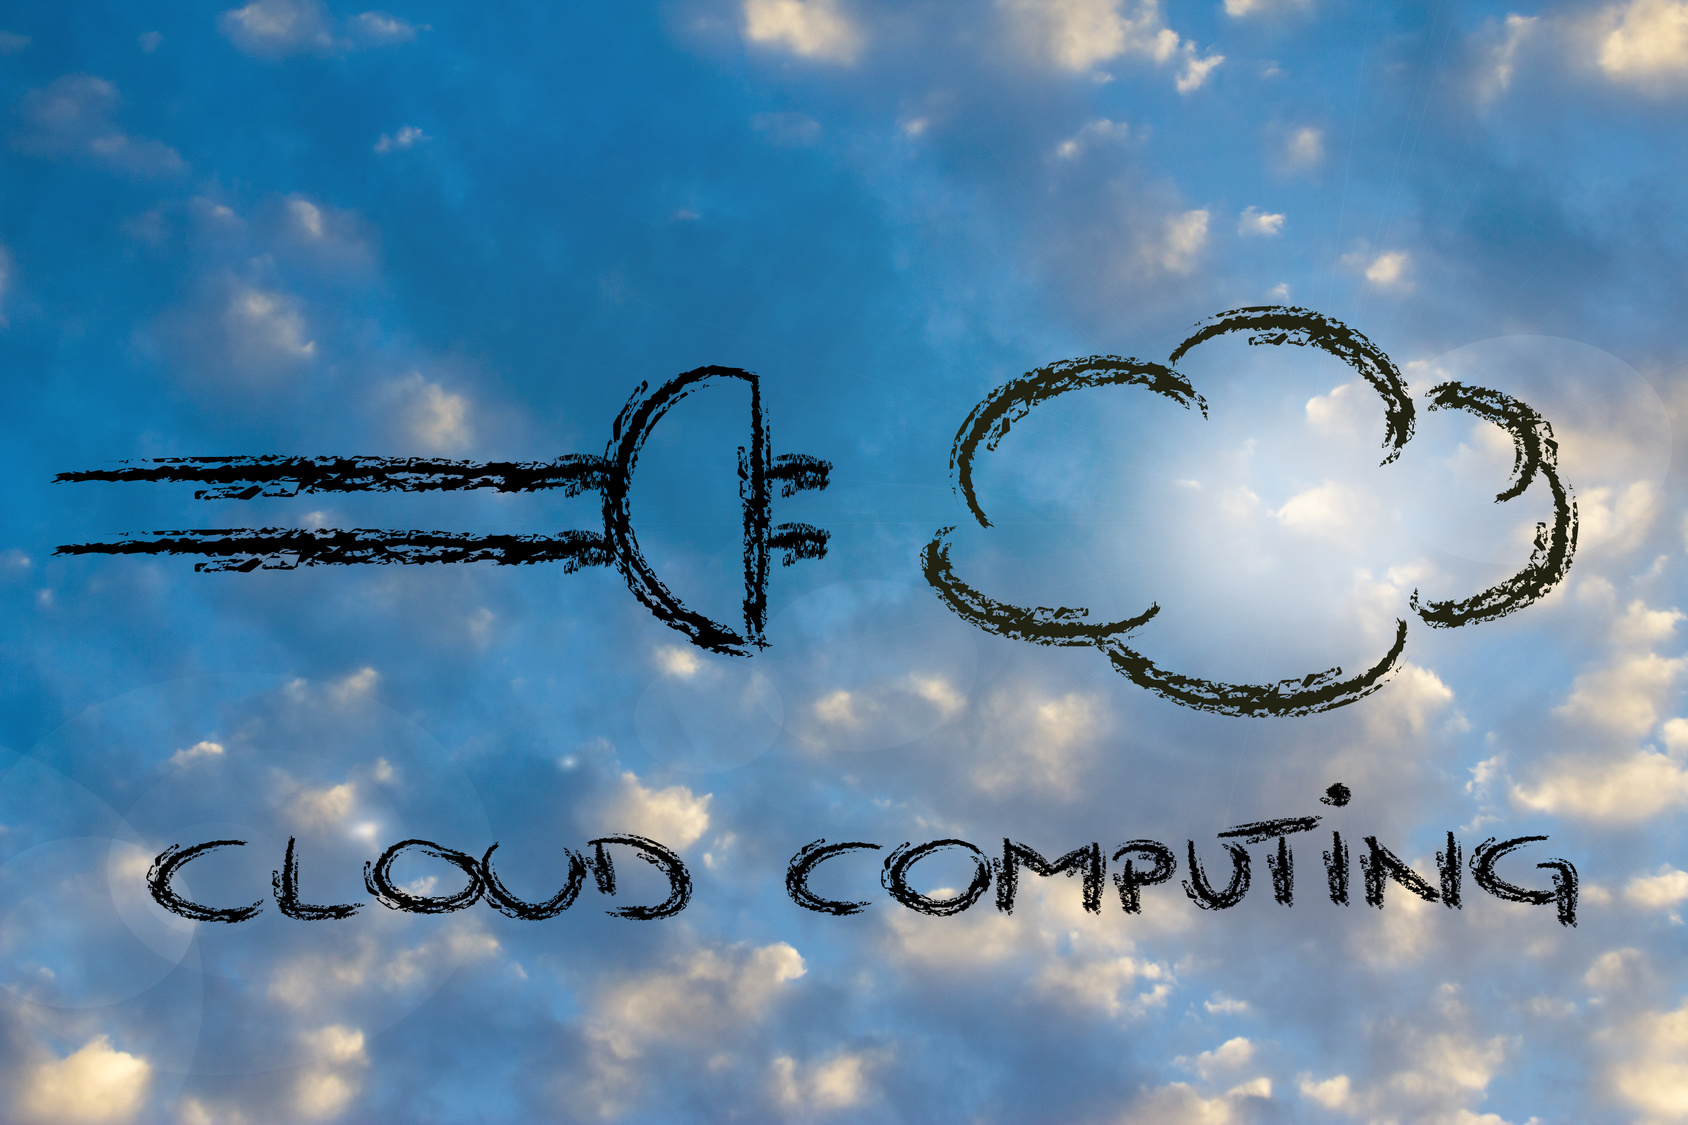 CLOUD COMPUTiNG